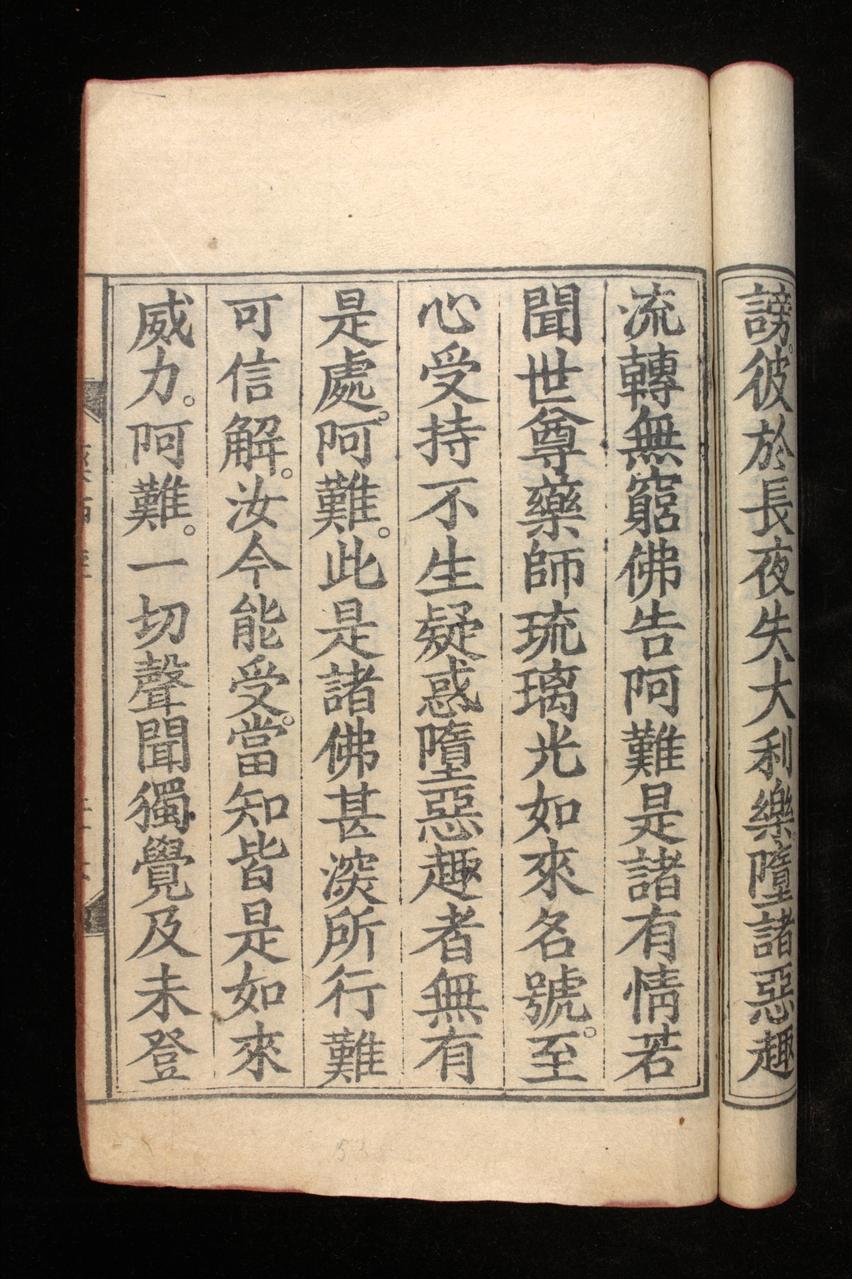 謗。彼於長夜失大利樂墮諸惡趣
流轉無窮佛告阿難是諸有情若
聞世尊藥師琉璃光如來名號。至
心受持不生疑惑墮惡趣者無有
是處。阿難。此是諸佛甚深所行難
可信解。汝今能受。當知皆是如來
威力。阿難。一切聲聞獨覺及未登